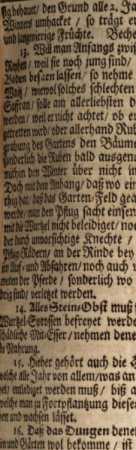 fig behaut, den Grund alle 2. Ja
Winters umhacket / so trägt e
und ungemerige Früchte. Beche
13. Will man Anfangs zwo
Reyhen / weil sie noch jung sind /
Boden besaen lassen / so nehme
Wäitz / wiewol solches schlechten
Saffran / solle am allerliebsten
werden / weil er nicht achtet / ob er
zertretten werd / oder allerhand Rüb
aubung des Gartens den Bäume
sonderlich die Ruben bald ausgen
uchten den Winter über nicht in
Doch mit dem Anhang / daß wo er
thig hat / daß das Garten-Feld gea
werde / mit den Pflug sacht einfer
mit die Wurtzel nicht beleidiget / noch
der durch unvorsichtige Knechte /
Pflug-Rädern / an der Rinde bey
im Auf- und Abfahren / noch auch
neten der Pferde / sonderlich wo
drig sind / verletzet werden.
14. Alles Stein-Obst muß
Wurtzel-Sprossen befreyet werde
schädliche Mit-Esser / nehmen denen
die Nahrung.
15. Hieher gehört auch die
welche alle Jahr von allem / was an
vet) entlediget werden muß / biß
welche man zu Fortpflantzung diese
hen und wachsen lässet.
16. Daß das Dungen denen
und Gärten wol bekomme / ist